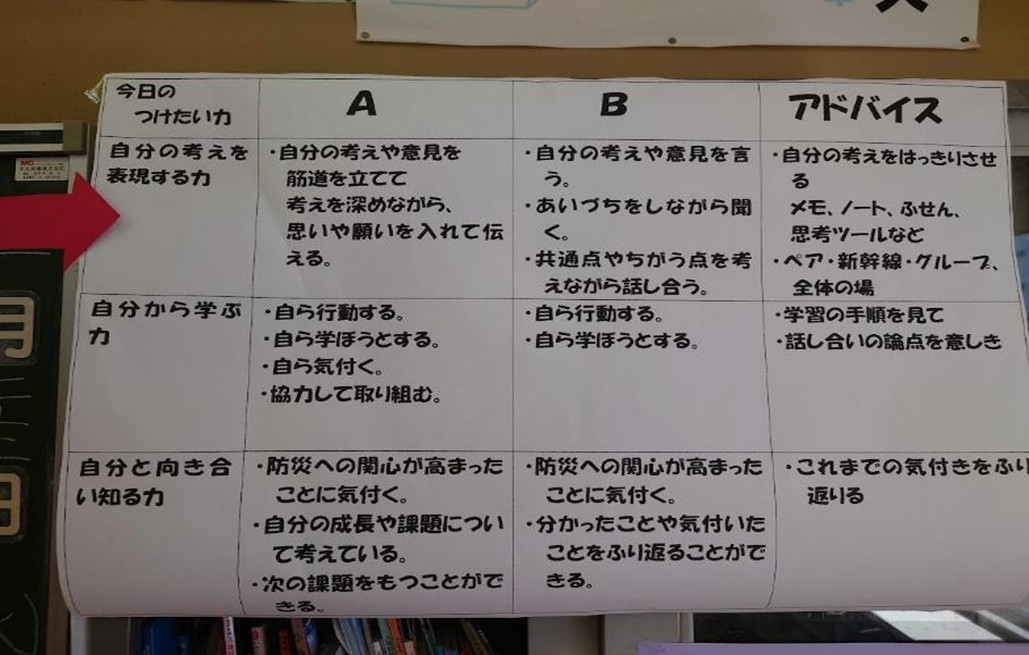 今日の
つけたい力
A
B
アドバイス
自分の考えを
表現する力
・自分の考えや意見を
筋道を立てて
考えを深めながら、
思いや願いを入れて伝
える。
・自分の考えや意見を言
う。
・あいづちをしながら聞
く。
・共通点やちがう点を考
えながら話し合う。
・自分の考えをはっきりさせ
る
メモ、ノート、ふせん、
思考ツールなど
・ペア・新幹線・グループ、
全体の場
自分から学ぶ
力
・自ら行動する。
・自ら学ぼうとする。
・自ら気付く。
・協力して取り組む。
・自ら行動する。
・自ら学ぼうとする。
・学習の手順を見て
・話し合いの論点を意しき
自分と向き合
い知る力
・防災への関心が高まった
ことに気付く。
・自分の成長や課題につい
て考えている。
・次の課題をもつことがで
きる。
・防災への関心が高まった
ことに気付く。
・分かったことや気付いた
ことをふり返ることがで
きる。
・これまでの気付きをふり
返りる
月
日